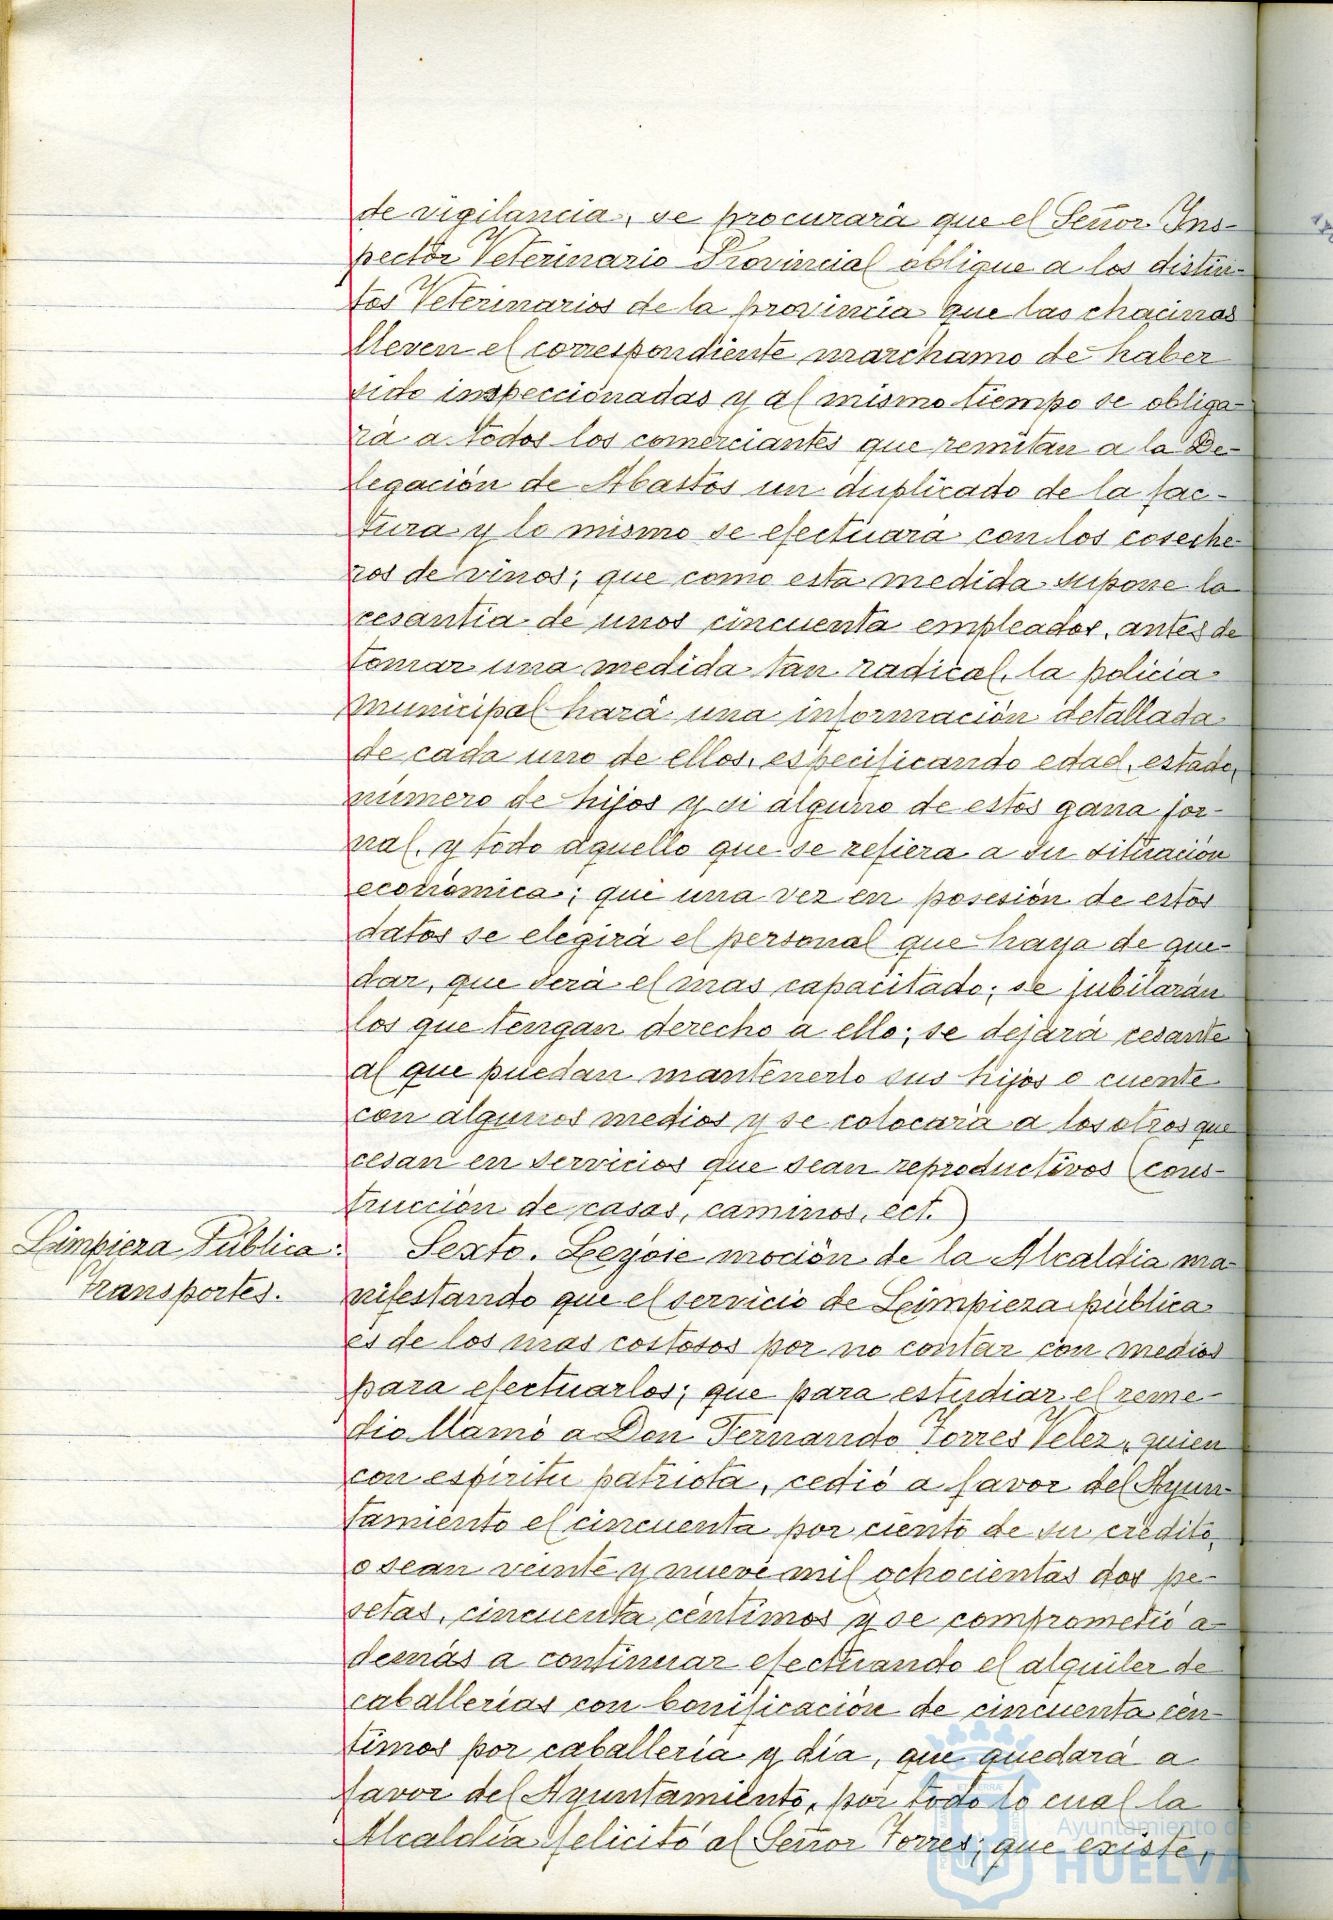 de vigilancia, se procurará que el Señor Ins-
pector Veterinario Provincial obligue a los distin-
tos Veterinarios de la provincia que las chacinas
lleven el correspondiente marchamo de haber
sido inspeccionadas y al mismo tiempo se obliga-
rá a todos los comerciantes que remitan a la De-
legación de Abastos un duplicado de la fac-
tura y lo mismo se efectuará con los coseche-
ros de vinos; que como esta medida supone la
cesantia de unos cincuenta empleados, antes de
tomar una medida tan radical, la policía
municipal hará una información detallada
de cada uno de ellos, especificando edad, estado,
número de hijos y si alguno de estos gana jor-
nal, y todo aquello que se refiera a su situación
económica; que una vez en posesión de estos
datos se elegirá el personal que haya de que-
dar, que será el mas capacitado; se jubilarán
los que tengan derecho a ello; se dejará cesante
al que puedan mantenerlo sus hijos o cuente
con algunos medios y se colocará a los otros que
cesan en servicios que sean reproductivos (cons-
trucción de casas, caminos, ect.)
Limpieza Pública:
Transportes.
Sexto. Leyóse moción de la Alcaldía ma-
nifestando que el servicio de Limpieza pública
es de los mas costosos por no contar con medios
para efectuarlos; que para estudiar el reme-
dio llamó a Don Fernando Torres Velez, quien
con espíritu patriota, cedió a favor del Ayun-
tamiento el cincuenta por ciento de su crédito,
o sean veinte y nueve mil ochocientas dos pe-
setas, cincuenta céntimos y se comprometió a-
demás a continuar efectuando el alquiler de
caballerías con bonificación de cincuenta cén-
timos por caballería y día, que quedará a
favor del Ayuntamiento, por todo lo cual la
Alcaldía felicitó al Señor Torres; que existe,
Ayuntamiento de
HUELVA